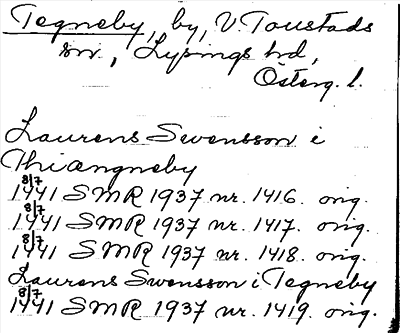 Tegneby, by, V. Toustads
sn., Lysings hd,
Österg. l.
Laurens Swensson i
Thiængneby
8/7
1441 SMR 1937 nr. 1416. orig.
8/7
1441 SMR 1937 nr. 1417. orig.
8/7
1441 SMR 1937 nr. 1418. orig.
Laurens Swensson i Tegneby
8/7
1441 SMR 1937 nr. 1419. orig.